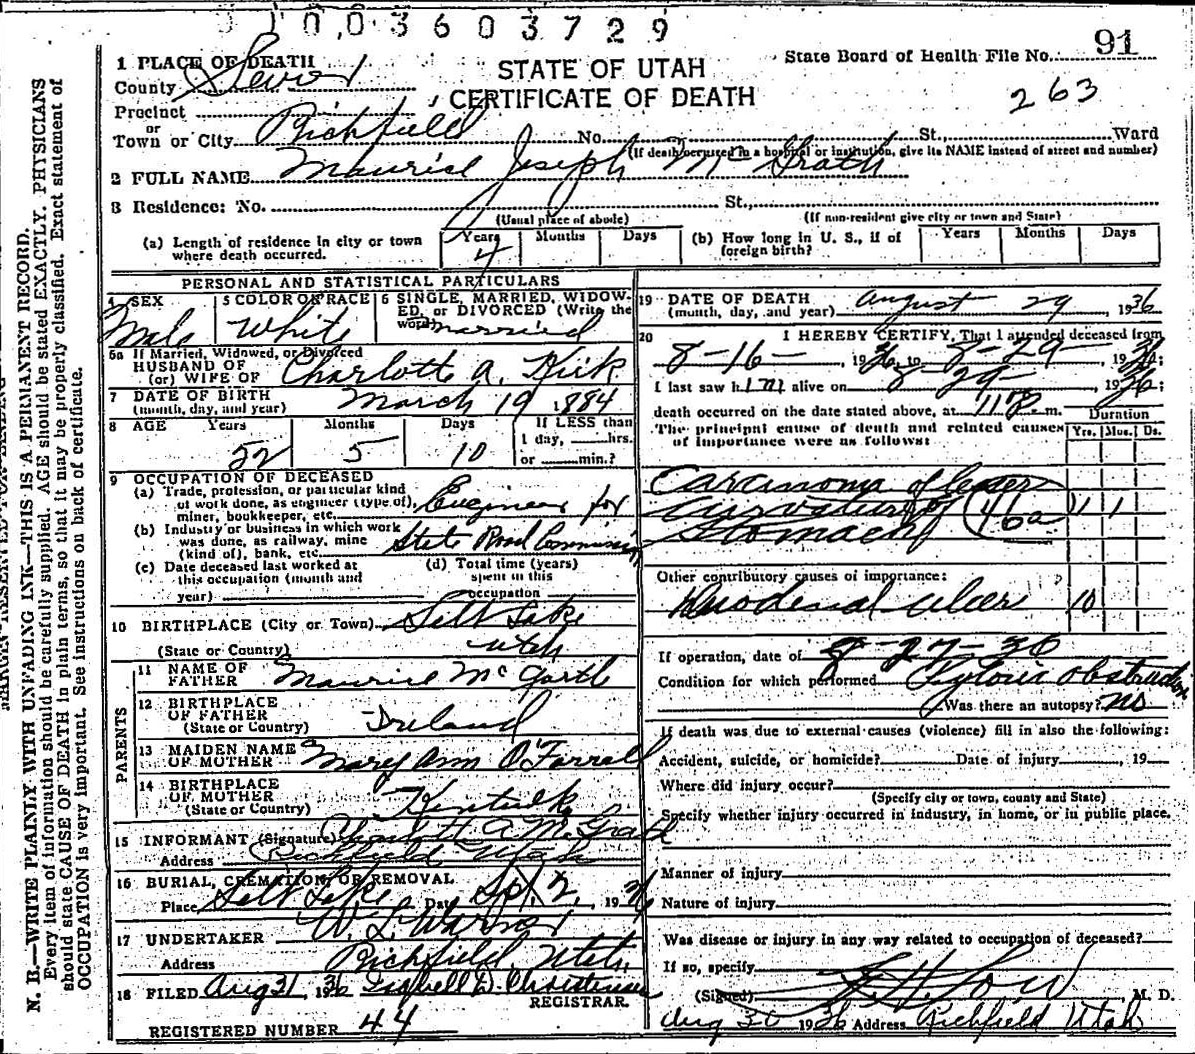 0 1 0 0 3 6 0 3 7 2 9
State Board of Health File No. 91
1 PLACE OF DEATH
STATE OF UTAH
County Sevier
CERTIFICATE OF DEATH
263
Precinct
or
Town or City Richfield No. St., Ward
(If death occurred in a hospital or institution, give its NAME instead of street and number)
2 FULL NAME Maurice Joseph McGrath
3 Residence: No. St.,
(Usual place of abode) (If non-resident give city or town and State)
(a) Length of residence in city or town where death occurred. Years 4 Months Days
(b) How long in U. S., if of foreign birth? Years Months Days
PERSONAL AND STATISTICAL PARTICULARS
4 SEX Male
5 COLOR OR RACE White
6 SINGLE, MARRIED, WIDOWED, or DIVORCED (Write the word) married
5a If Married, Widowed, or Divorced
HUSBAND OF
(or) WIFE OF Charlotte A. Kirk
7 DATE OF BIRTH
(month, day, and year) March 19 1884
8 AGE Years 52 Months 5 Days 10
If LESS than
1 day, hrs.
or min.?
9 OCCUPATION OF DECEASED
(a) Trade, profession, or particular kind
of work done, as engineer (type of),
miner, bookkeeper, etc. Engineer for
(b) Industry or business in which work
was done, as railway, mine
(kind of), bank, etc. State Road Commission
(c) Date deceased last worked at
this occupation (month and
year)
(d) Total time (years)
spent in this
occupation
10 BIRTHPLACE (City or Town) Salt Lake
(State or Country) Utah
PARENTS
11 NAME OF
FATHER Maurice McGrath
12 BIRTHPLACE
OF FATHER
(State or Country) Ireland
13 MAIDEN NAME
OF MOTHER Mary Ann O'Farrell
14 BIRTHPLACE
OF MOTHER
(State or Country) Kentucky
15 INFORMANT (Signature) Charlott A McGrath
Address Richfield Utah
16 BURIAL, CREMATION, OR REMOVAL
Place Salt Lake Date Sept. 2, 1936
17 UNDERTAKER W. L. Warner
Address Richfield, Utah
18 FILED Aug 31 1936 Christensen
REGISTRAR.
REGISTERED NUMBER 44
19 DATE OF DEATH
(month, day, and year) August 29, 1936
20 I HEREBY CERTIFY, That I attended deceased from
8-16- 1936, to 8-29- 1936;
I last saw him alive on 8-29- 1936;
death occurred on the date stated above, at 11 P m.
The principal cause of death and related causes
of importance were as follows:
Duration
Yrs. Mos. Ds.
Carcinoma of lesser
curvature of (46a) 1 1
Stomach
Other contributory causes of importance:
Duodenal ulcer 10
If operation, date of 8-27-36
Condition for which performed Pyloric obstruction
Was there an autopsy? no
If death was due to external causes (violence) fill in also the following:
Accident, suicide, or homicide? Date of injury , 19
Where did injury occur?
(Specify city or town, county and State)
Specify whether injury occurred in industry, in home, or in public place.
Manner of injury
Nature of injury
Was disease or injury in any way related to occupation of deceased?
If so, specify
(Signed) M. D.
Aug 30 1936 Address Richfield Utah
N. B.—WRITE PLAINLY WITH UNFADING INK—THIS IS A PERMANENT RECORD.
Every item of information should be carefully supplied. AGE should be stated EXACTLY. PHYSICIANS
should state CAUSE OF DEATH in plain terms, so that it may be properly classified. Exact statement of
OCCUPATION is very important. See instructions on back of certificate.